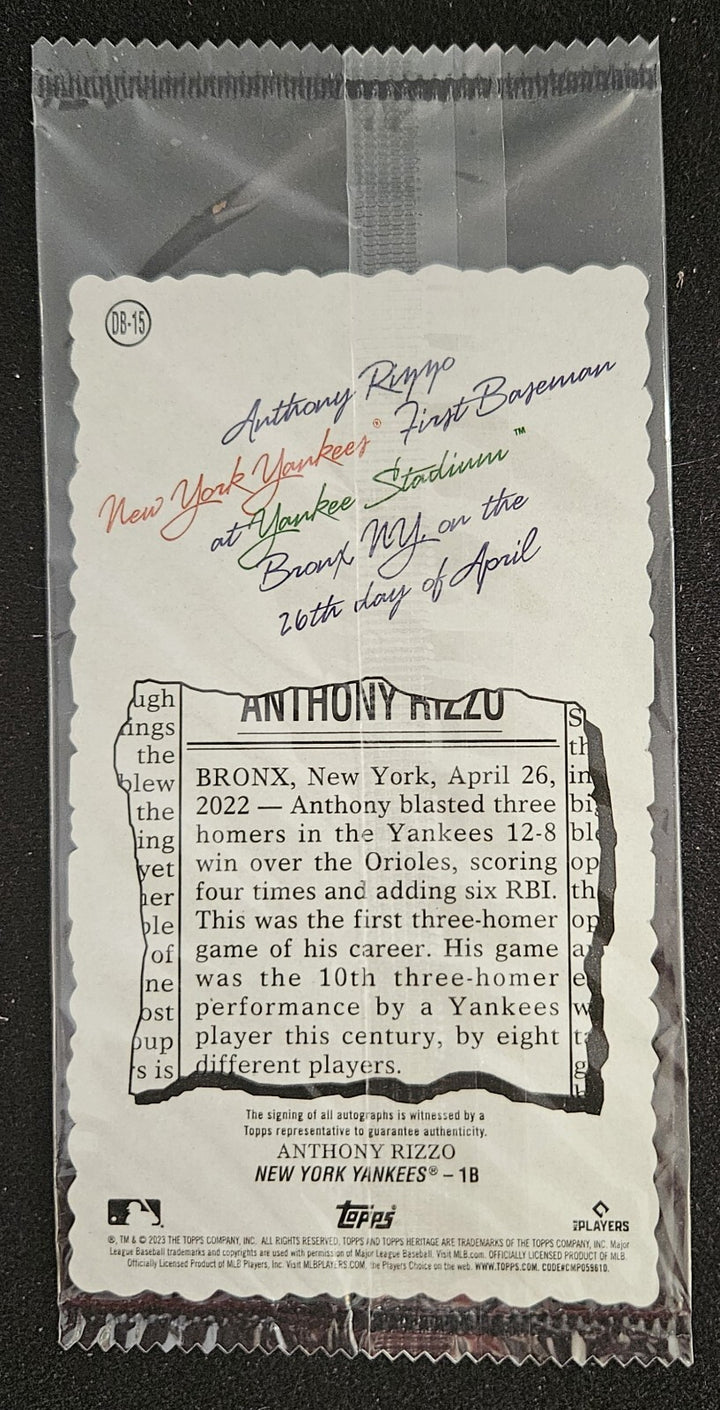 DB-15
Anthony Rizzo
New York Yankees® First Baseman
at Yankee Stadium™
Bronx, NY, on the
26th day of April
ANTHONY RIZZO
ugh
ings
the
blew
the
ing
yet
her
ple
of
ne
ost
oup
s is
BRONX, New York, April 26,
2022 — Anthony blasted three
homers in the Yankees 12-8
win over the Orioles, scoring
four times and adding six RBI.
This was the first three-homer
game of his career. His game
was the 10th three-homer
performance by a Yankees
player this century, by eight
different players.
S
th
in
bi
bl
op
th
op
a
e
w
t
g
The signing of all autographs is witnessed by a
Topps representative to guarantee authenticity.
ANTHONY RIZZO
NEW YORK YANKEES® – 1B
topps
PLAYERS
®, TM & © 2023 THE TOPPS COMPANY, INC. ALL RIGHTS RESERVED. TOPPS AND TOPPS HERITAGE ARE TRADEMARKS OF THE TOPPS COMPANY, INC. Major
League Baseball trademarks and copyrights are used with permission of Major League Baseball. Visit MLB.com. OFFICIALLY LICENSED PRODUCT OF MLB.
Officially Licensed Product of MLB Players, Inc. Visit MLBPLAYERS.COM, the Players Choice on the web. WWW.TOPPS.COM. CODE#CMP059610.